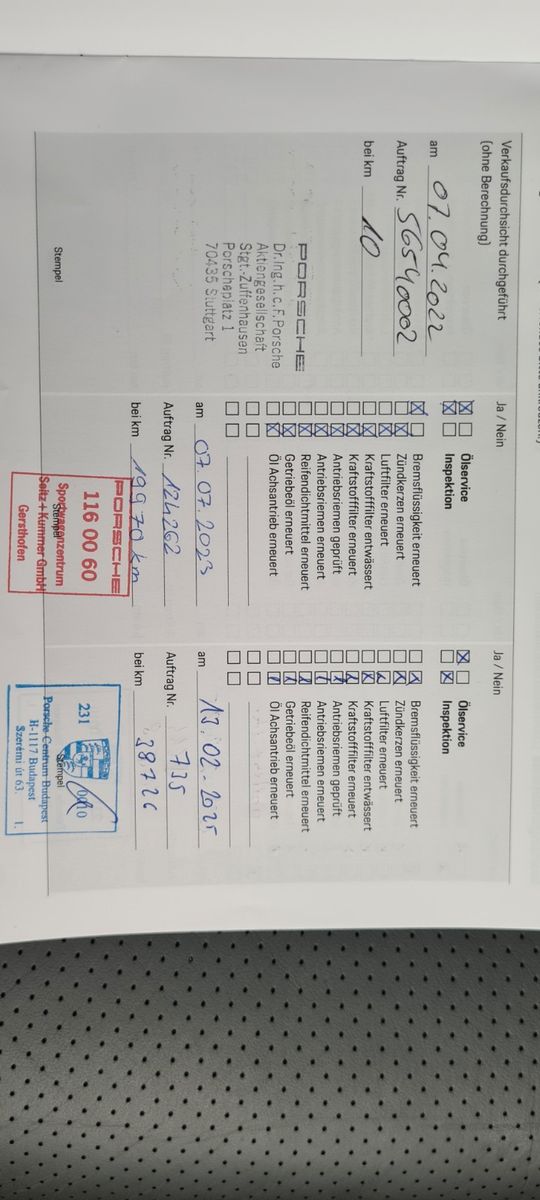 Verkaufsdurchsicht durchgeführt
(ohne Berechnung)
am 07.04.2022
Auftrag Nr. 56540002
bei km 10
PORSCHE
Dr.Ing.h.c.F.Porsche
Aktiengesellschaft
Stgt.-Zuffenhausen
Porscheplatz 1
70435 Stuttgart
Stempel
Ja / Nein
Ölservice
Inspektion
Bremsflüssigkeit erneuert
Zündkerzen erneuert
Luftfilter erneuert
Kraftstofffilter entwässert
Kraftstofffilter erneuert
Antriebsriemen geprüft
Antriebsriemen erneuert
Reifendichtmittel erneuert
Getriebeöl erneuert
Öl Achsantrieb erneuert
am 07.07.2023
Auftrag Nr. 124262
bei km 19970 km
PORSCHE
116 00 60
Stempel
Sportwagenzentrum
Seitz+Kummer GmbH
Gersthofen
Ja / Nein
Ölservice
Inspektion
Bremsflüssigkeit erneuert
Zündkerzen erneuert
Luftfilter erneuert
Kraftstofffilter entwässert
Kraftstofffilter erneuert
Antriebsriemen geprüft
Antriebsriemen erneuert
Reifendichtmittel erneuert
Getriebeöl erneuert
Öl Achsantrieb erneuert
am 13.02.2025
Auftrag Nr. 735
bei km 38726
231
Stempel
Porsche Centrum Budapest
H-1117 Budapest
Szerémi út 63. 1.